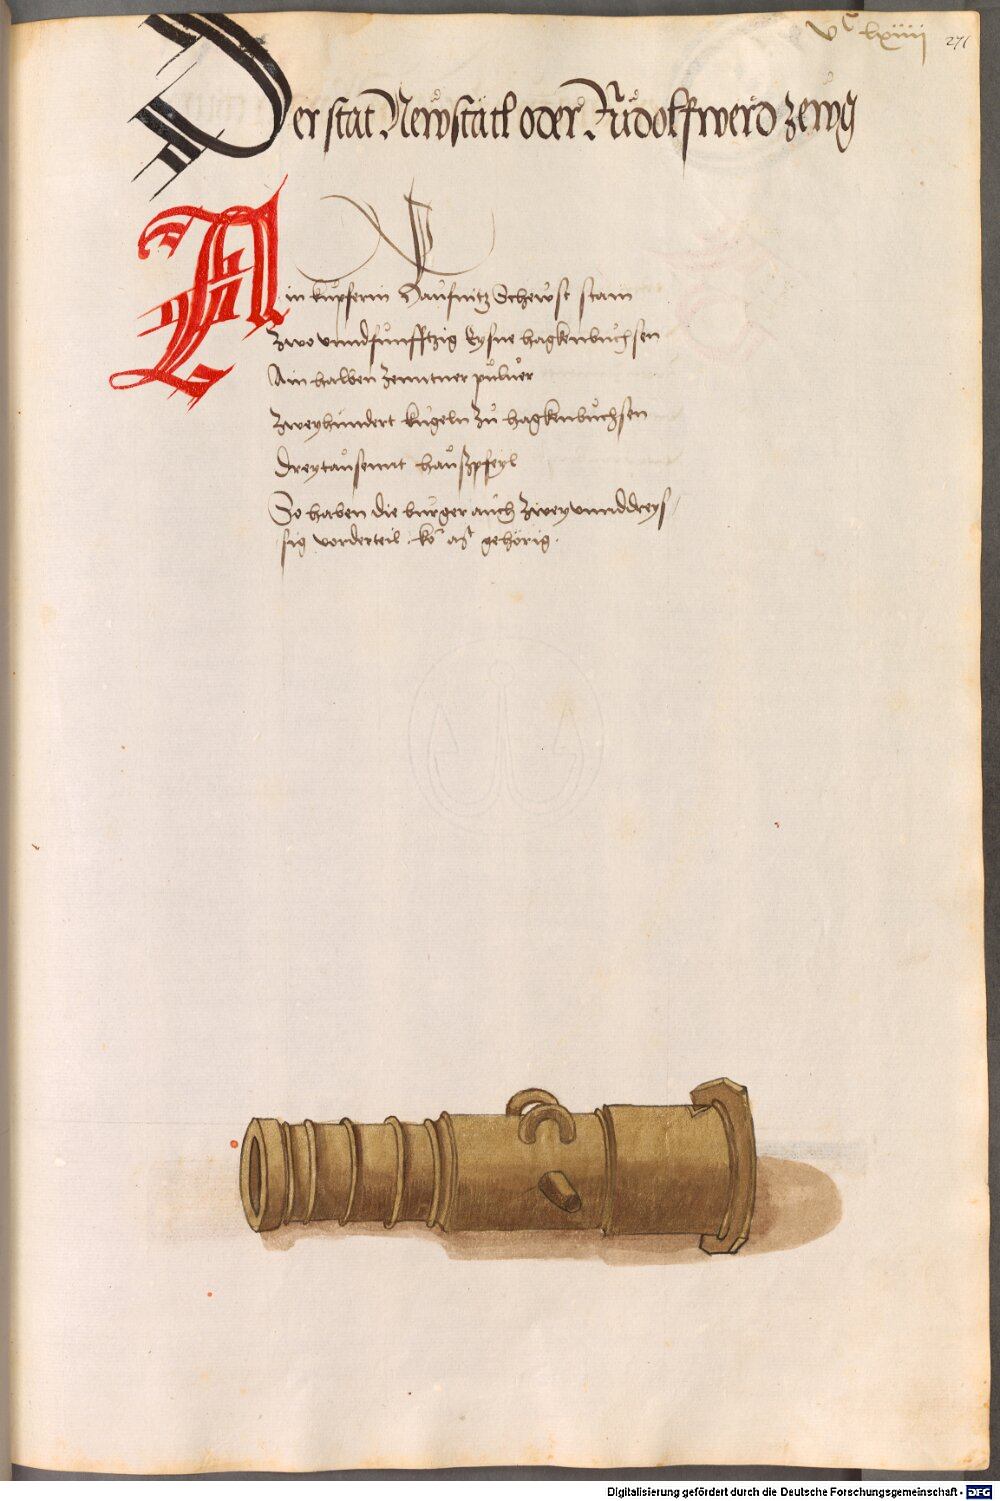 vᶜ lxiiii
271
Der stat Newstätl oder Růdolfswerd zewg
Ain kupferin Haufnitz Schewst stain
Zwo vnnd funfftzig Eysne hagkenbuchsen
Ain halben Zenntner puluer
Zweyhundert kugeln zu hagkenbuchsen
Dreytausennt hauszpfeyl
So haben die burger auch zwey vnnd dreys/
sig vorderteil . ko͞ gehörig .
Digitalisierung gefördert durch die Deutsche Forschungsgemeinschaft - DFG